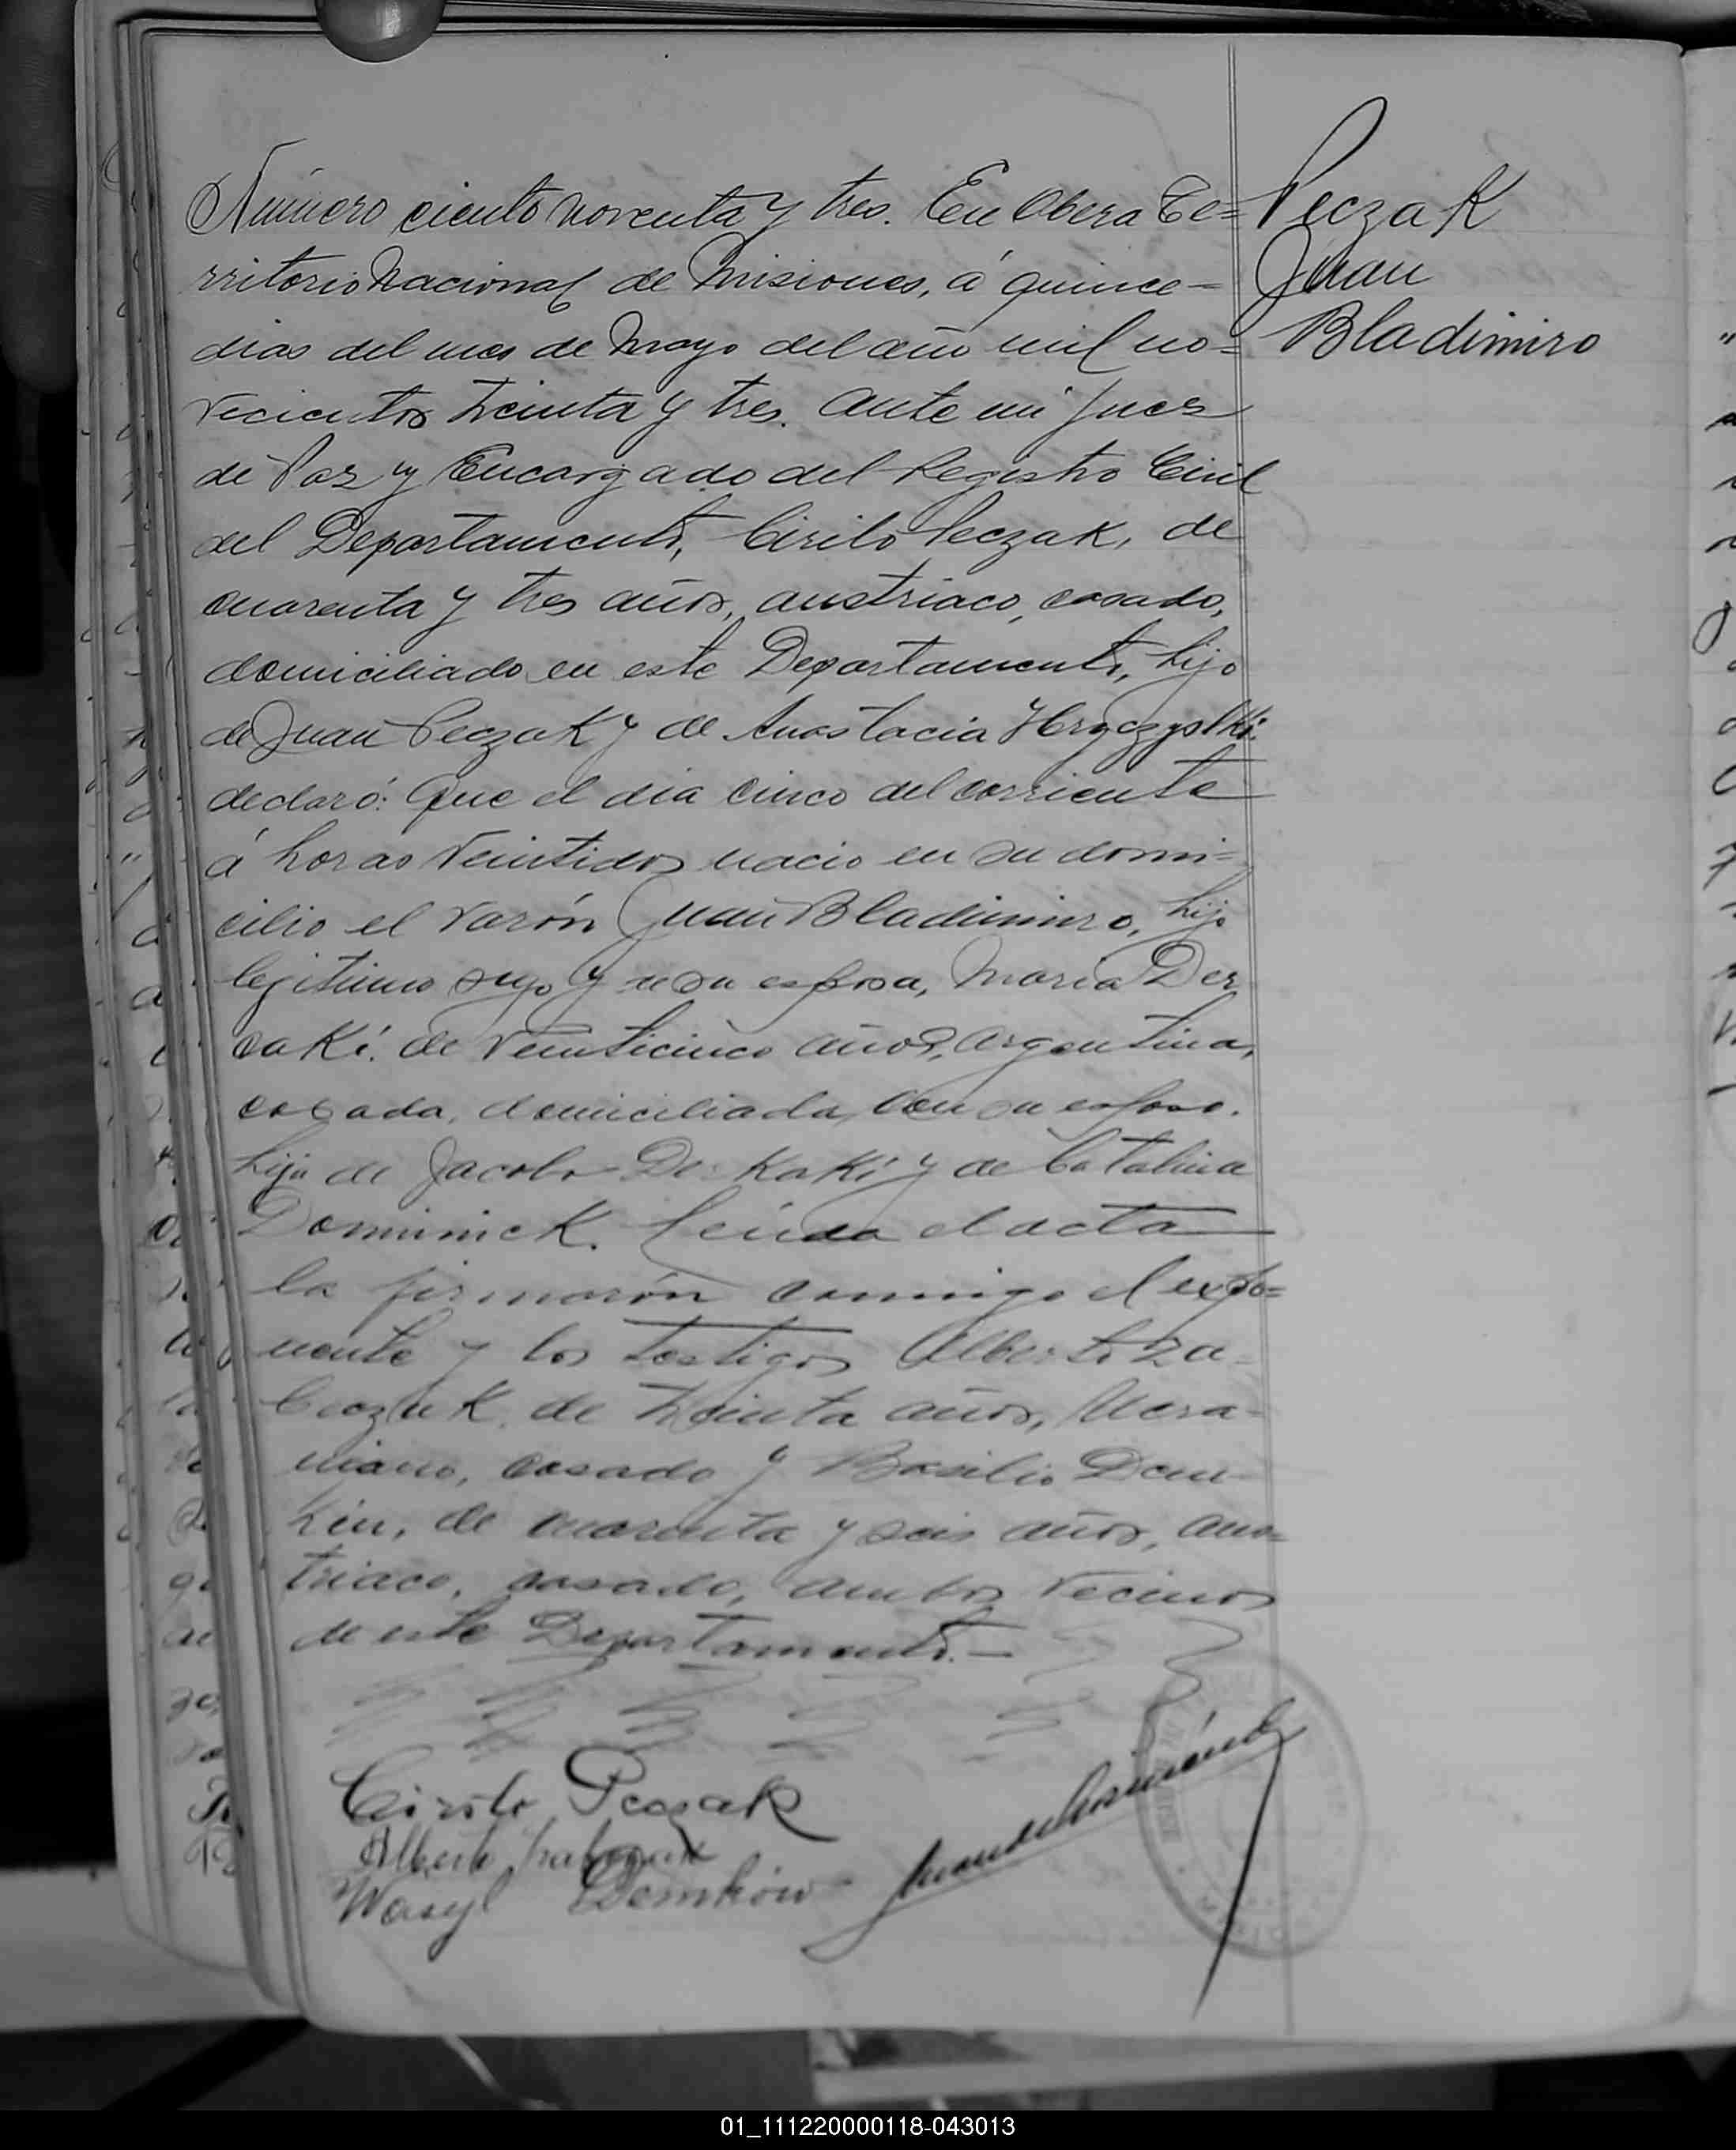 Número ciento noventa y tres. En Obera Te=
rritorio Nacional de Misiones, á quince=
dias del mes de Mayo del año mil no=
vecientos treinta y tres. Ante mi Juez
de Paz y Encargado del Registro Civil
del Departamento, Cirilo Peczak, de
cuarenta y tres años, austriaco, casado,
domiciliado en este Departamento, hijo
de Juan Peczak y de Anastacia
declaró: Que el dia cinco del corriente
á horas veintidos nacio en su domi=
cilio el varón Juan Bladimiro, hijo
legitimo suyo y de su esposa, Maria Der
kaki. de veinticinco años, argentina,
casada, domiciliada con su esposo.
hija de Jacobo Derkaki y de Catalina
Dominick. Leida el acta
la firmarón conmigo el expo=
nente y los testigos Alberto Za=
de treinta años, Ucra-
niano, casado y Basilio Dem-
kiu, de cuarenta y seis años, aus=
triaco, casado, ambos vecinos
de este Departamento.—
Peczak
Juan
Bladimiro
Cirilo Peczak
Alberto
Wasyl Demkow
01_111220000118-043013